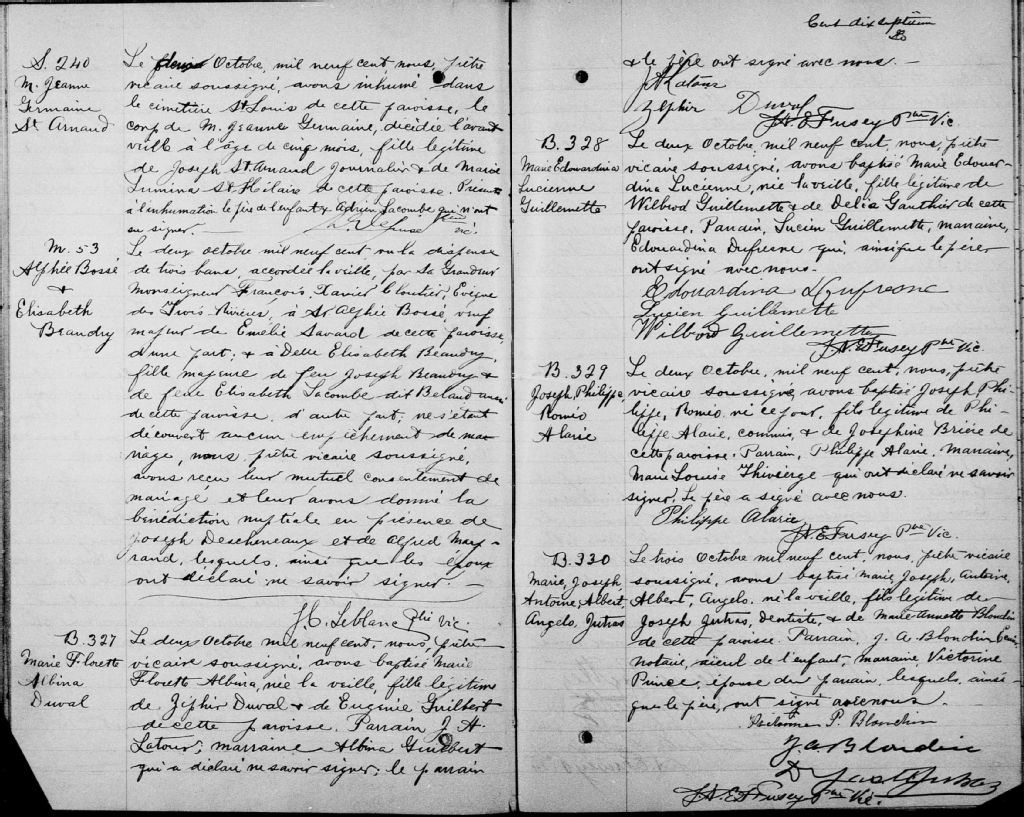 S. 240
M. Jeanne
Germaine
St Arnaud
Le Octobre, mil neuf cent nous, prêtre
vicaire soussigné, avons inhumé dans
le cimetière St Louis de cette paroisse, le
corps de M. Jeanne Germaine, décédée l'avant
veille à l'âge de cinq mois, fille légitime
de Joseph St Arnaud Journalier & de Marie
Lumina St Hilaire de cette paroisse. Présents
à l'inhumation le père de l'enfant & Adrien Lacombe qui n'ont
su signer.
vic.
M. 53
Alphée Bossé
&
Elisabeth
Beaudry
Le deux octobre mil neuf cent vu la dispense
de trois bans, accordée la veille, par Sa Grandeur
Monseigneur François Xavier Cloutier, Evêque
des Trois Rivières, à Sr Alphée Bossé, veuf
majeur de Emélie Savard de cette paroisse,
d'une part; & à Delle Elisabeth Beaudry,
fille majeure de feu Joseph Beaudry &
de feue Elisabeth Lacombe dit Beland aussi
de cette paroisse, d'autre part, ne s'étant
découvert aucun empêchement de ma-
riage, nous prêtre vicaire soussigné,
avons reçu leur mutuel consentement de
mariage et leur avons donné la
bénédiction nuptiale en présence de
Joseph Descheneaux et de Alfred May-
rand, lesquels, ainsi que les époux
ont déclaré ne savoir signer.
J. C. Leblanc Ptre Vic.
B. 327
Marie Florette
Albina
Duval
Le deux Octobre, mil neuf cent, nous, prêtre
vicaire soussigné, avons baptisé Marie
Florette Albina, née la veille, fille légitime
de Zéphir Duval & de Eugénie Guilbert
de cette paroisse. Parrain J. A
Latour, marraine Albina Guilbert
qui a déclaré ne savoir signer, le parrain
Cent dix septième
& le père ont signé avec nous. —
J A Latour
Zéphir Duval
J. A. E. Fusey Ptre Vic
B. 328
Marie Edouardina
Lucienne
Guillemette
Le deux Octobre, mil neuf cent, nous, prêtre
vicaire soussigné, avons baptisé Marie Edouar-
dina Lucienne, née la veille, fille légitime de
Wilbrod Guillemette & de Délia Gauthier de cette
paroisse. Parrain, Lucien Guillemette, marraine,
Edouardina Dufresne qui, ainsi que le père,
ont signé avec nous.
Edouardina Dufresne
Lucien Guillemette
Wilbord Guillemette
J. A. E. Fusey Ptre Vic.
B. 329
Joseph, Philippe,
Roméo
Alarie
Le deux Octobre, mil neuf cent, nous, prêtre
vicaire soussigné, avons baptisé Joseph, Phi-
lippe, Roméo, né ce jour, fils légitime de Phi-
lippe Alarie, commis, & de Joséphine Brière de
cette paroisse. Parrain, Philippe Alarie, Marraine,
Marie Louise Thivierge qui ont déclaré ne savoir
signer. Le père a signé avec nous.
Philippe Alarie
J. A. E. Fusey Ptre Vic.
B. 330
Marie, Joseph,
Antoine, Albert,
Angelo, Jutras
Le trois Octobre mil neuf cent, nous, prêtre vicaire
soussigné, avons baptisé Marie, Joseph, Antoine,
Albert, Angelo, né la veille, fils légitime de
Joseph Jutras, Dentiste, & de Marie Annette Blondin
de cette paroisse. Parrain, J. A. Blondin
notaire, aieul de l'enfant, marraine, Victorine
Prince, épouse du parrain, lesquels, ainsi
que le père, ont signé avec nous.
Victorine P. Blondin
J A Blondin
Dr Jos Jutras
J. A. E. Fusey Ptre Vic.